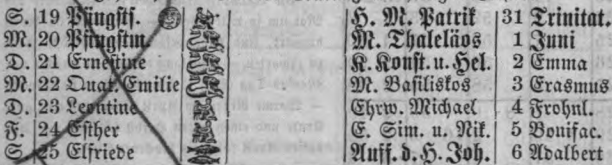 S. 19 Pfingstf. H. M. Patrik 31 Trinitat.
M. 20 Pfingstm. M. Thaleläos 1 Juni
D. 21 Ernestine K. Konst. u. Hel. 2 Emma
M. 22 Quat. Emilie M. Basiliskos 3 Erasmus
D. 23 Leontine Ehrw. Michael 4 Frohnl.
F. 24 Esther E. Sim. u. Nik. 5 Bonifac.
S. 25 Elfriede Auff. d. H. Joh. 6 Adalbert